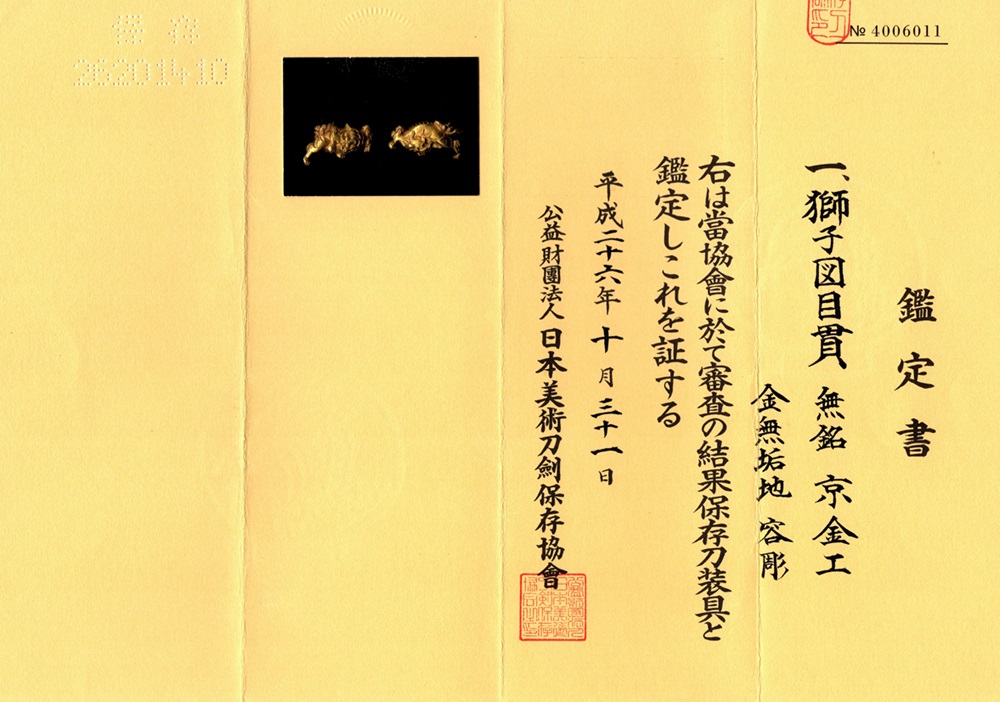 № 4006011
鑑定書
一、獅子図目貫 無銘 京金工
金無垢地 容彫
右は當協會に於て審査の結果保存刀装具と
鑑定しこれを証する
平成二十六年十月三十一日
公益財團法人 日本美術刀劍保存協會
26201410